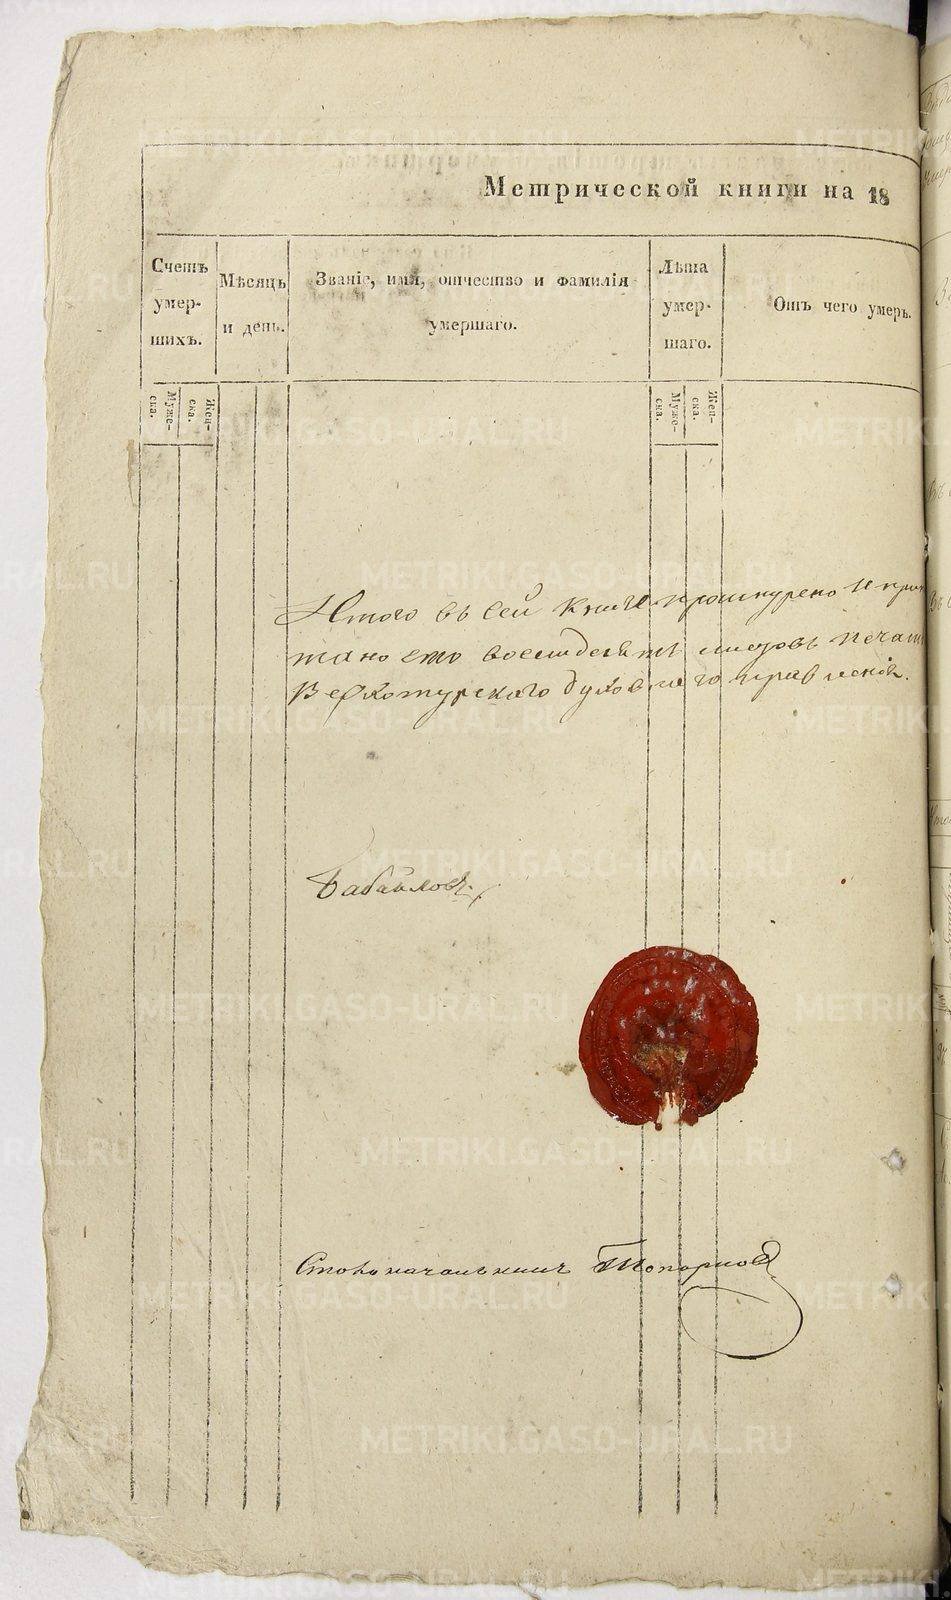 Метрической книги на 18
Счетъ умер- шихъ.
Мѣсяцъ и день.
Званіе, имя, отчество и фамилія умершаго.
Лѣта умер- шаго.
Отъ чего умеръ.
Муже- ска.
Жен- ска.
Муже- ска.
Жен- ска.
Итого въ сей книге прошнурено и при
тано сто восемьдесятъ листовъ печат
Верхотурскаго духовнаго правленія.
Бабайловъ
Столоначальник Топорков
METRIKI.GASO-URAL.RU